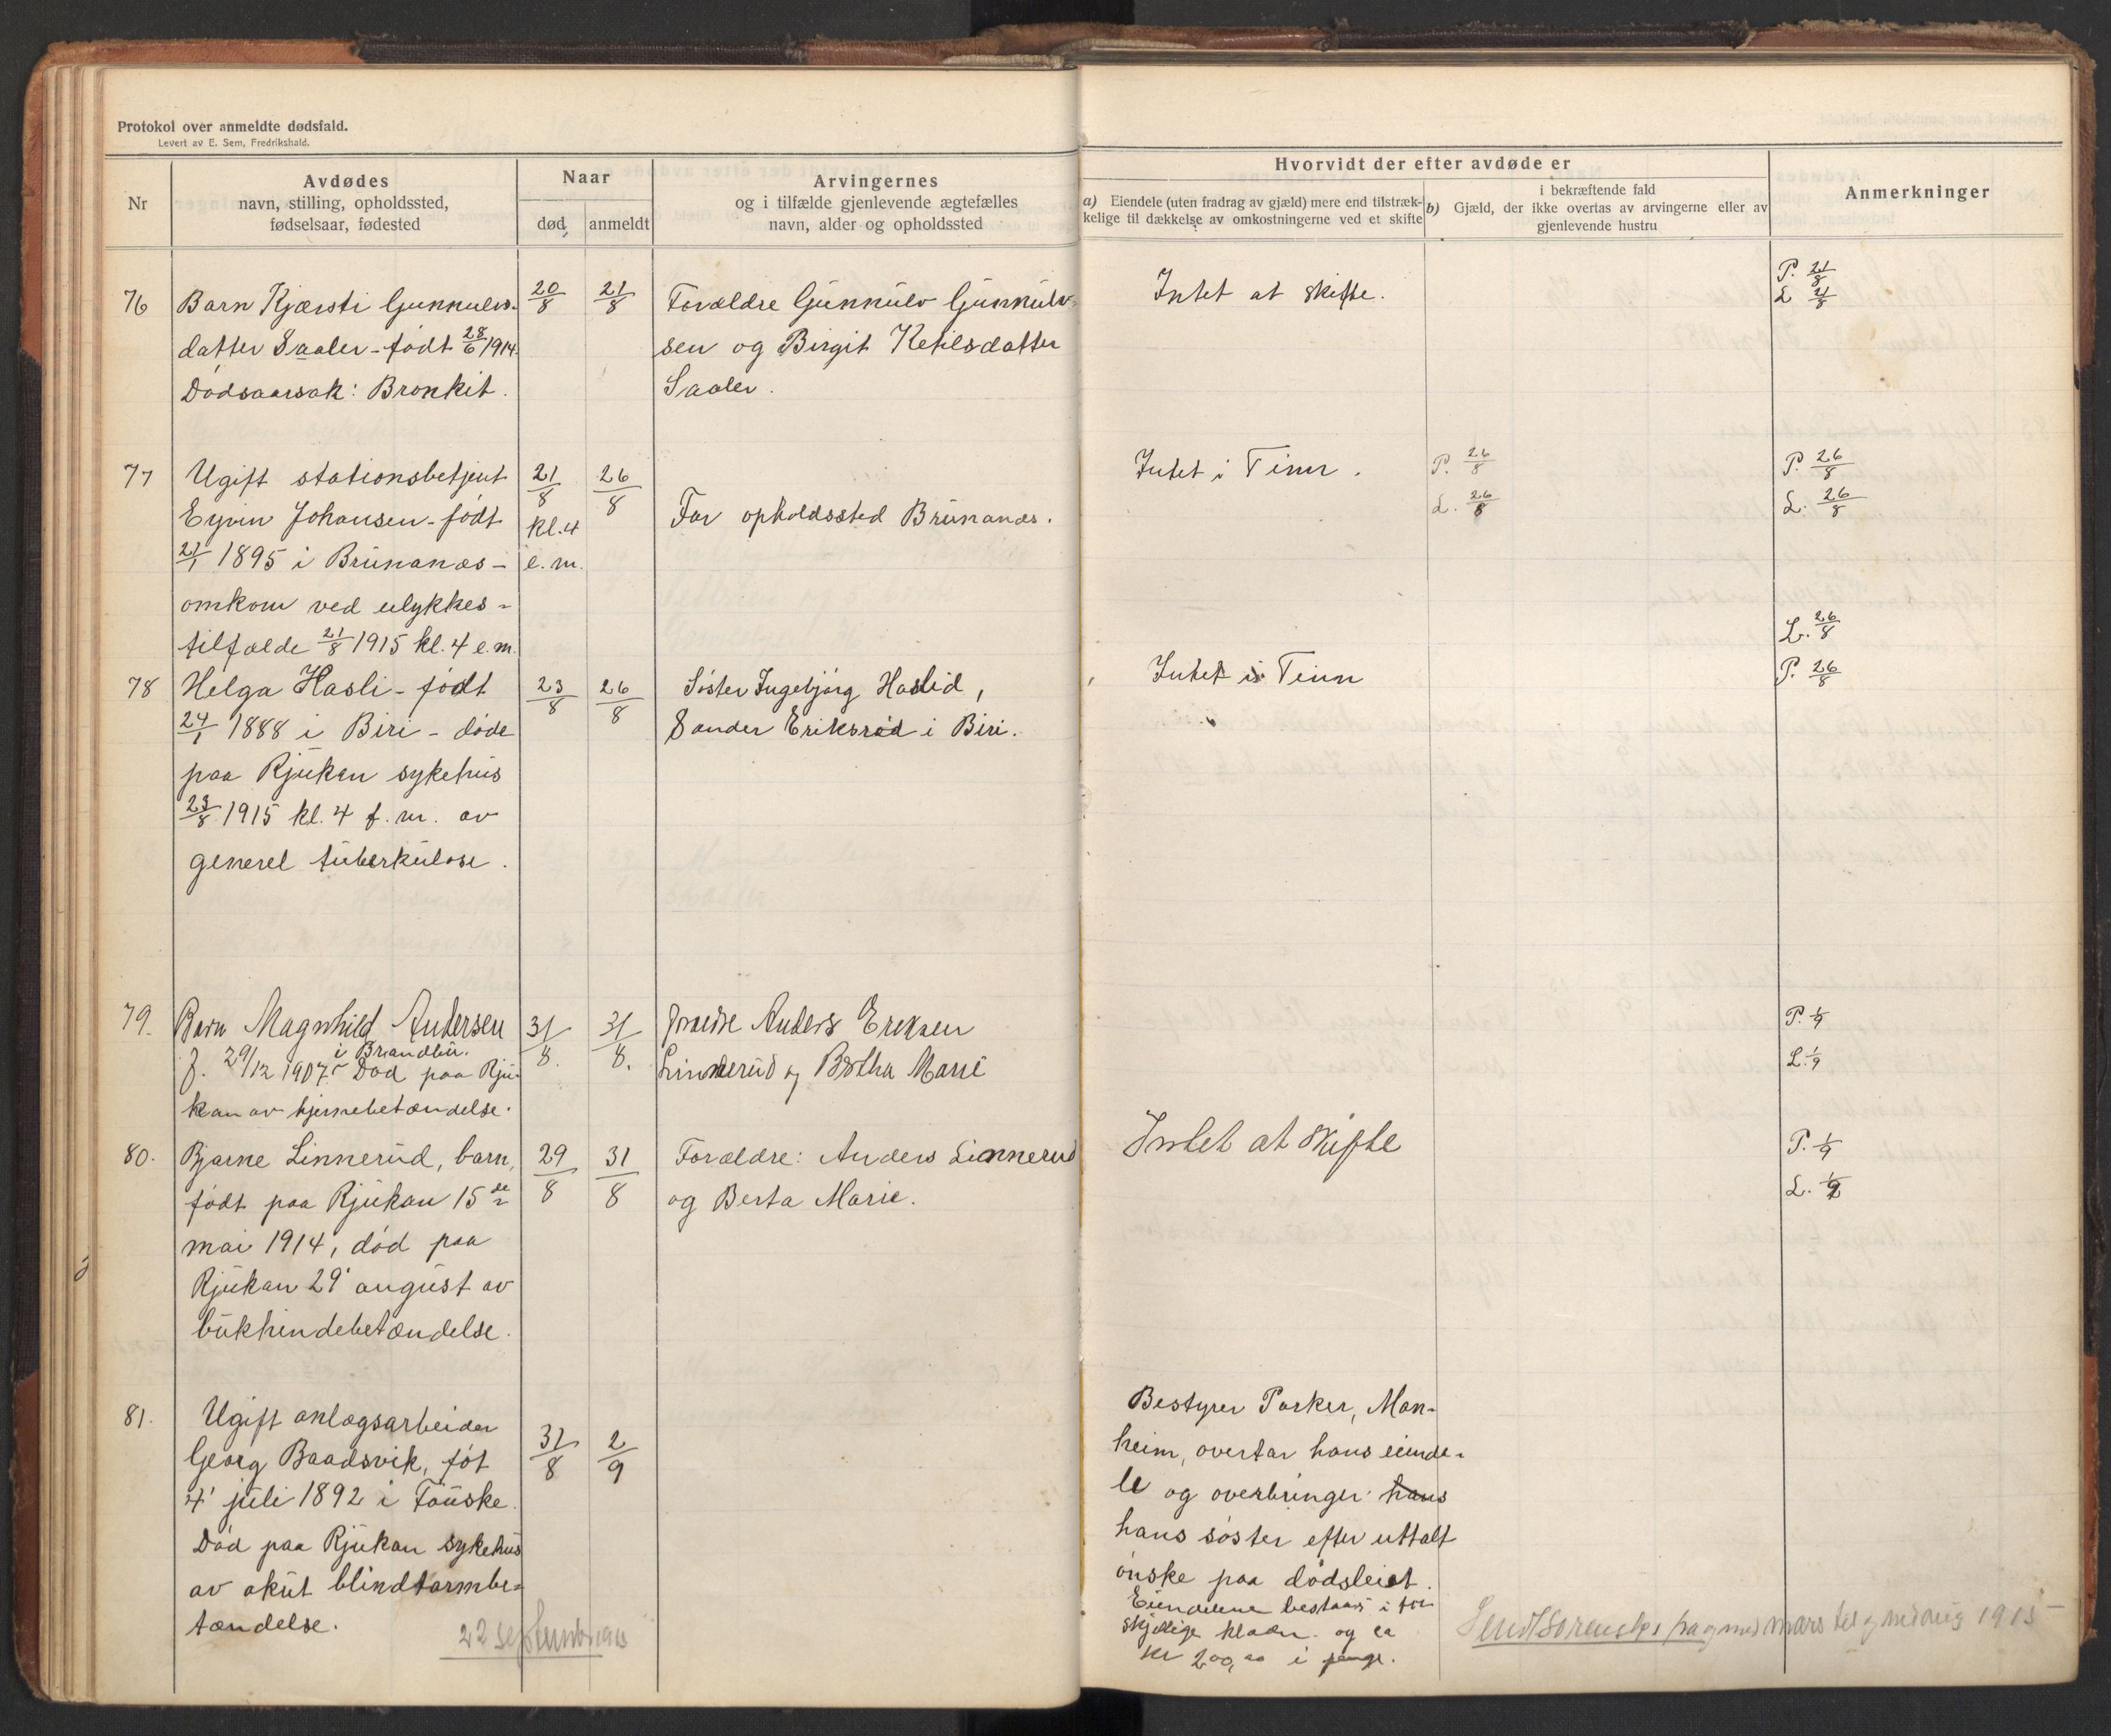 Protokol over anmeldte dødsfald.
Levert av E. Sem, Fredrikshald.
Nr
Avdødes
navn, stilling, opholdssted,
fødselsaar, fødested
Naar
død
anmeldt
Arvingernes
og i tilfælde gjenlevende ægtefælles
navn, alder og opholdssted
Hvorvidt der efter avdøde er
a) Eiendele (uten fradrag av gjæld) mere end tilstræk-
kelige til dækkelse av omkostningerne ved et skifte
i bekræftende fald
b) Gjæld, der ikke overtas av arvingerne eller av
gjenlevende hustru
Anmerkninger
76
Barn Kjærsti Gunnulvs-
datter Saaler - født 28/6 1914.
Dødsaarsak: Bronkit.
20/8
21/8
Forældre Gunnulv Gunnulv-
sen og Birgit Ketilsdatter
Saaler.
Intet at skifte.
P. 21/8
L 21/8
77
Ugift stationsbetjent
Eyvin Johansen - født
21/1 1895 i Brunanæs -
omkom ved ulykkes-
tilfælde 21/8 1915 kl. 4 e.m.
21/8
kl. 4
e.m.
26/8
Far opholdssted Brunanæs.
Intet i Tinn.
P. 26/8
L. 26/8
P. 26/8
L. 26/8
78
Helga Hasli - født
24/1 1888 i Biri - døde
paa Rjukan sykehus
23/8 1915 kl. 4 f.m. av
generel tuberkulose.
23/8
26/8
Søster Ingebjørg Haslid,
Sander Eriksrød i Biri.
Intet i Tinn
L. 26/8
P. 26/8
79.
Barn Magnhild Andersen
i Brandbu.
f. 29/12 1907. Død paa Rju-
kan av hjernebetændelse.
31/8.
31/8.
Anders Eriksen
Linnerud og Bertha Marie
P. 1/9
L. 1/9
80.
Bjarne Linnerud, barn,
født paa Rjukan 15de
mai 1914, død paa
Rjukan 29' august av
bukhindebetændelse.
29/8
31/8
Forældre: Anders Linnerud
og Berta Marie.
Intet at skifte
P. 1/9
L. 1/9
81.
Ugift anlægsarbeider
Georg Baadsvik, føt
4' juli 1892 i Fauske.
Død paa Rjukan sykehus
av akut blindtarmbe-
tændelse.
31/8
2/9
Bestyrer Parker, Mon-
heim, overtar hans eiende-
le og overbringer hans
hans søster efter uttalt
ønske paa dødsleiet.
Eiendelene bestaar i for-
skjellige klæder og ca
kr 200,00 i penge.
22 septembr 1915
Sendt Sorenskr fra og med mars til og med aug 1915